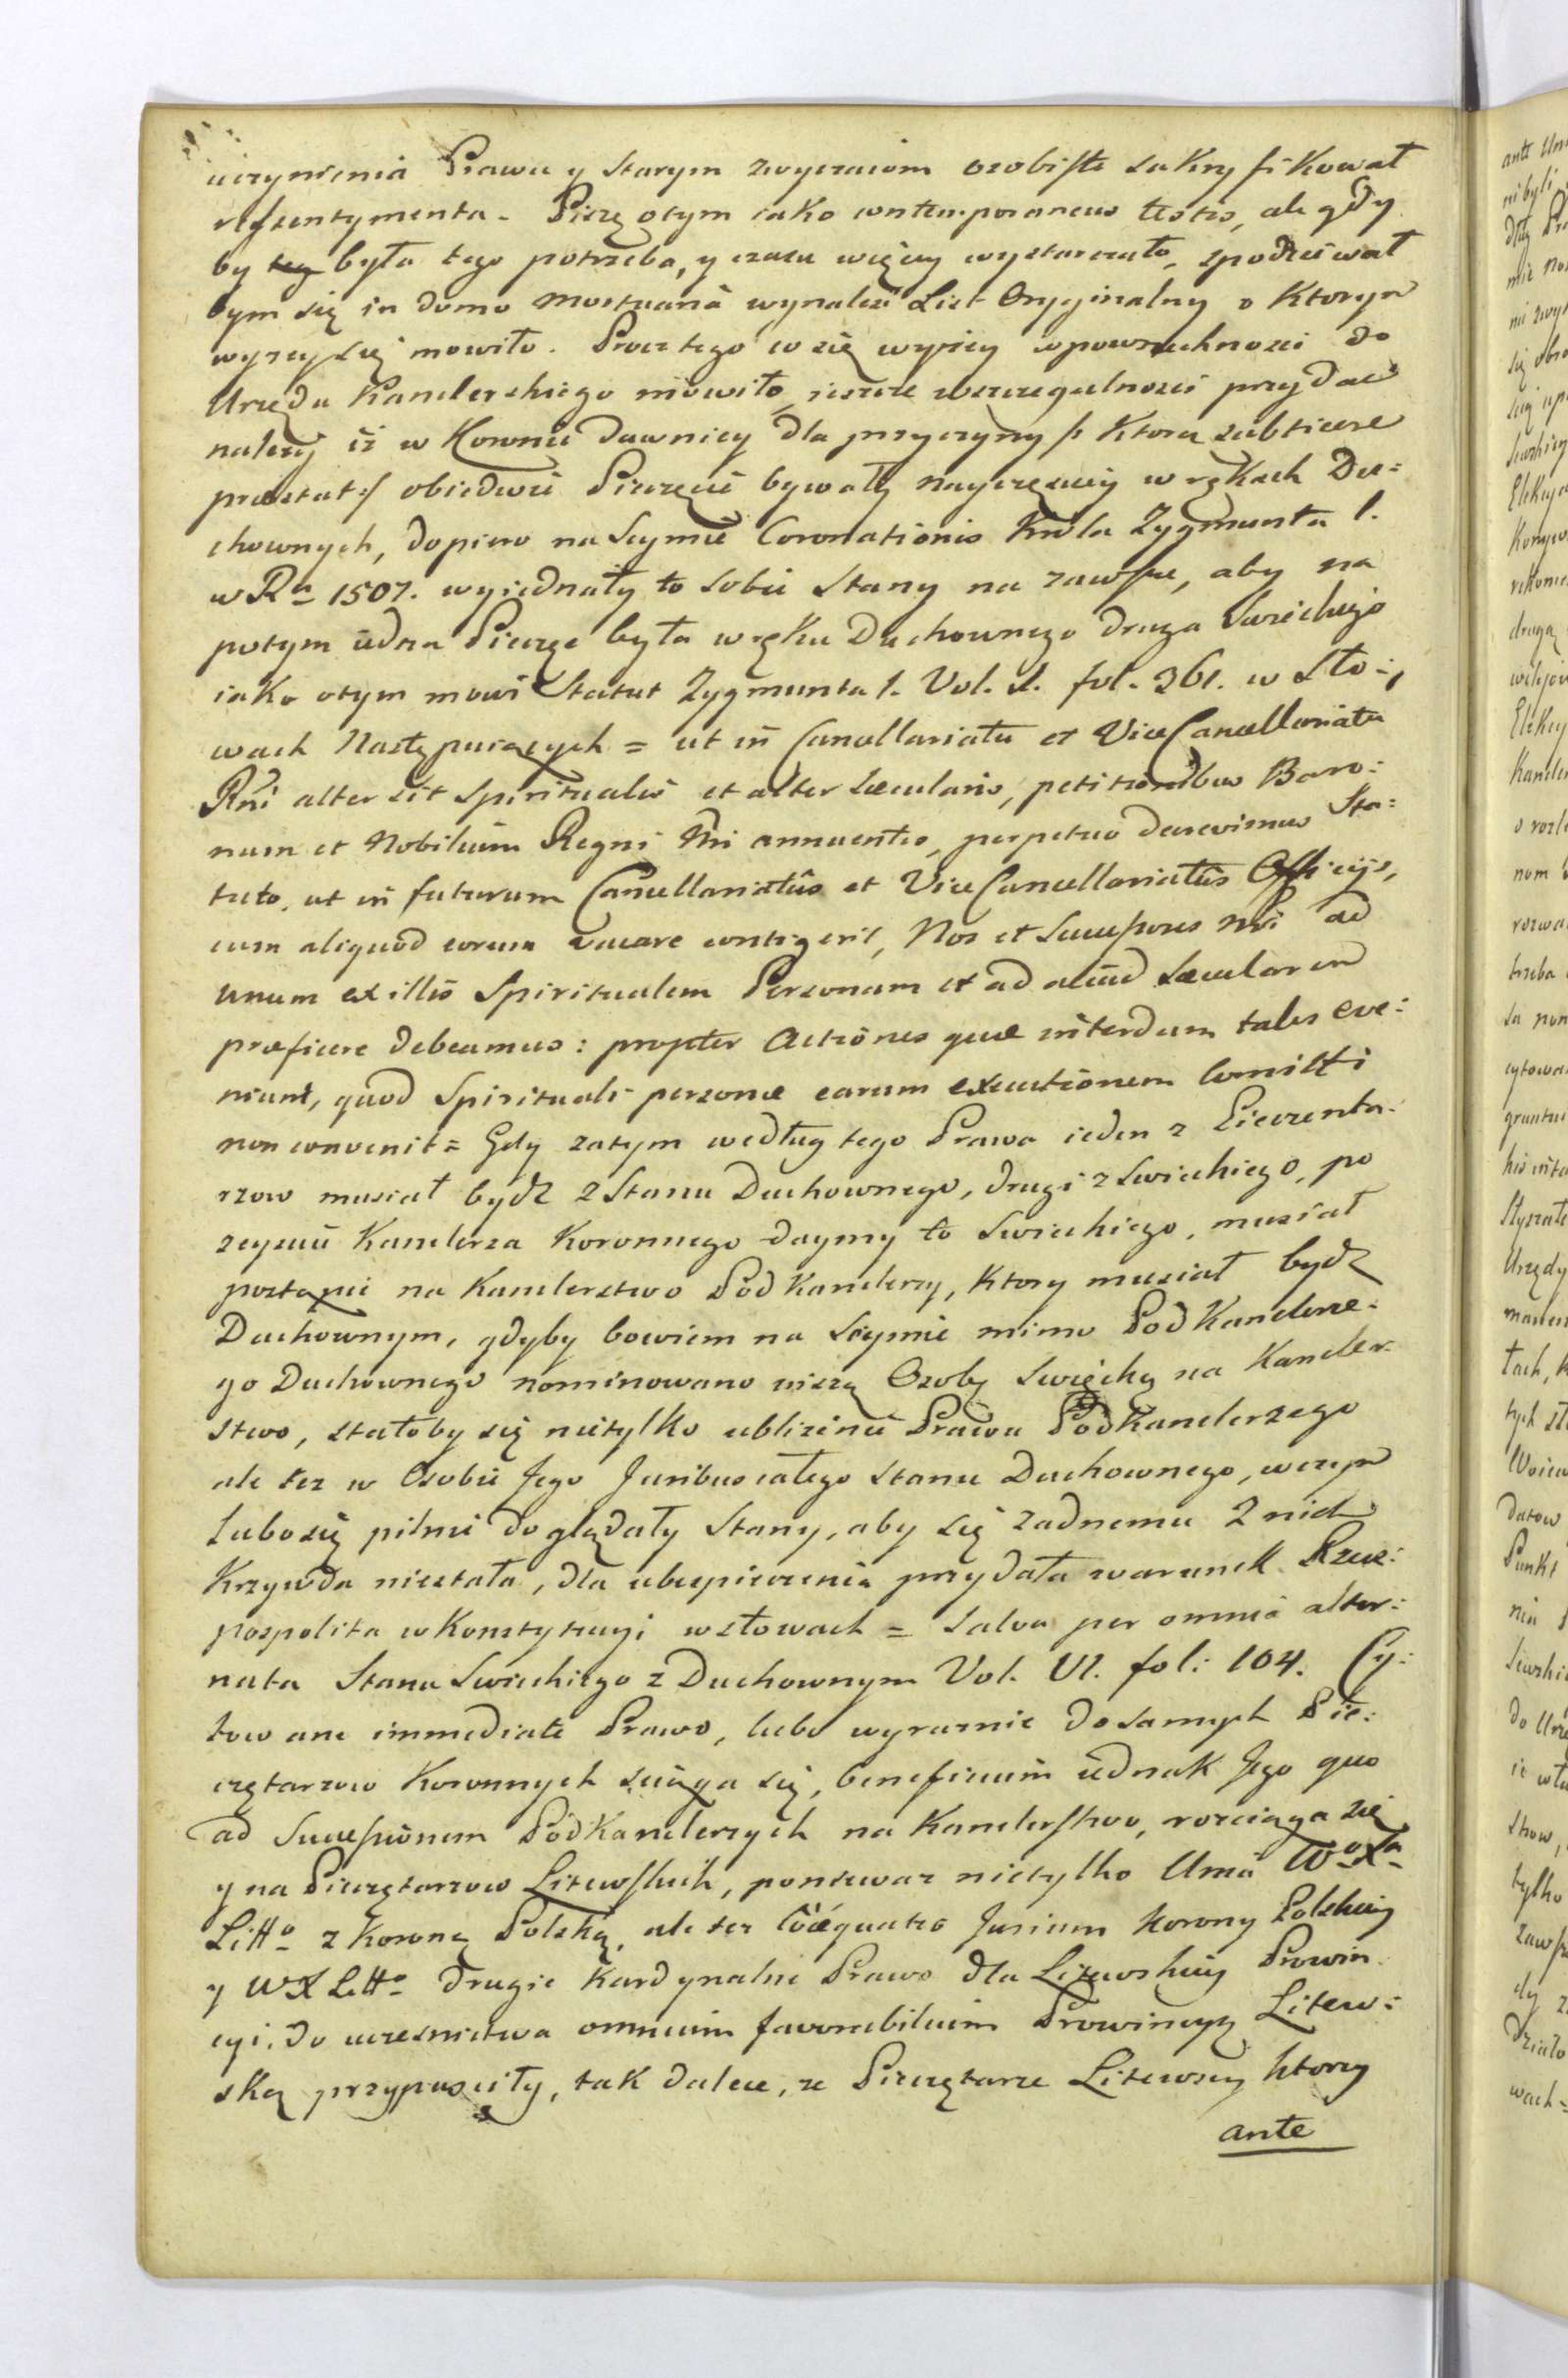 uczynienia Prawu y starym zwyczaiom osobiste sakryfikował
ressentymenta. Piszę otym iako contemporaneus testis, ale gdy
by była tego potrzeba, y czasu więcey wystarczało, spodziewał
bym się in domo mostuana wynaleść List Oryginalny o Ktorym
wyzey się mowiło. Procz tego co się wyzey wpowszechnosci do
Urzędu Kanclerskiego mowiło, ieszcze wszczegulnosci przydać
nalezy iż w Koronie dawniey dla przyczyny /: Ktora subticere
præstat :/ obiedwie Pieczęcie bywały nayczęsciey w rękach Du:
chownych, dopiero na Seymie Coronationis Krola Zygmunta I.
w Rᵘ 1507. wyiednały to sobie Stany na zawsze, aby na
potym iedna Pieczęc była w ręku Duchownego druga Swieckiego
iako otym mowi Statut Zygmunta I. Vol. I. fol. 361. w Sło:
wach Następuiących = ut in Cancellariatu et ViceCancellariatu
Rni alter sit Spiritualis et alter sæcularis, petitionibus Baro:
num et Nobilium Regni Nri annuentes, perpetuo decrevimus Sta:
tuto, ut in futurum Cancellariatûs et ViceCancellariatûs Officijs,
cum aliquod eorum vacare contigerit, Nos et Successores Nri ad
unum ex illis Spiritualem Personam et ad aliud sæcularem
præficere debeamus: propter Actiones quæ interdum tales eve:
niunt, quod Spirituali personæ earum executionem comitti
non convenit = Gdy zatym według tego Prawa ieden z Pieczenta:
rzow musiał bydz z Stanu Duchownego, drugi z Swieckiego, po
zeysciu Kanclerza Koronnego daymy to Swieckiego, musiał
postąpic na Kanclerstwo PodKanclerzy, Ktory musiał bydz
Duchownym, gdyby bowiem na Seymie mimo PodKanclerze:
go Duchownego nominowano Osobę Swiecką na Kancler:
stwo, stałoby się nietylko ublizenie Prawu PodKanclerzego
ale tez w Osobie Jego Juribus całego Stanu Duchownego, wczym
lubo się pilnie doglądały Stany, aby się zadnemu z nich
Krzywda niestała, dla ubezpieczenia przydała warunek Rzecz:
pospolita w Konstytucyi w słowach = Salva per omnia alter:
nata Stanu Swieckiego z Duchownym Vol. VI. fol: 104. Cy:
towane immediate Prawo, lubo wyraznie do samych Pie:
czętarzow Koronnych sciąga się, beneficium iednak Jego quo
ad Successionem PodKanclerzych na Kanclerstwo, rosciąga się
y na Pieczętarzow Litewskich, poniewaz nietylko Unia Wᵒ Xᵃ
Littᵒ z Koroną Polską, ale tez Coæquatio Jurium Korony Polskiey
y W X Littᵒ drugie Kardynalne Prawo dla Litewskiey Prowin
cyi, do uczesnictwa omnium favorabilium Prowincyą Litew:
ską przypusciły, tak dalece, ze Pieczętarze Litewscy ktorzy
ante